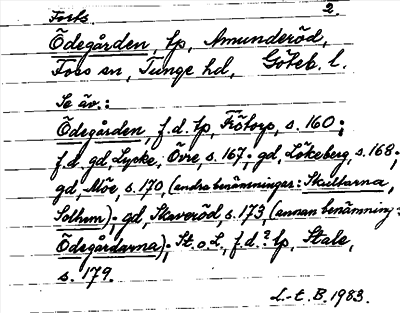 Forts. 2.
Ödegården, lp, Amunderöd,
Foss sn, Tunge hd, Göteb. l.
Se äv.:
Ödegården, f.d. lp, Frötorp, s. 160;
f.d. gd, Lycke, Övre, s. 167; gd, Lökeberg, s. 168;
gd, Möe, s. 170, (andra benämningar: Skultarna,
Solhem); gd, Skaveröd, s. 173, (annan benämning:
Ödegårdarna); St. o. L., f.d.? lp, Stale,
s. 179.
L-t. B. 1983.